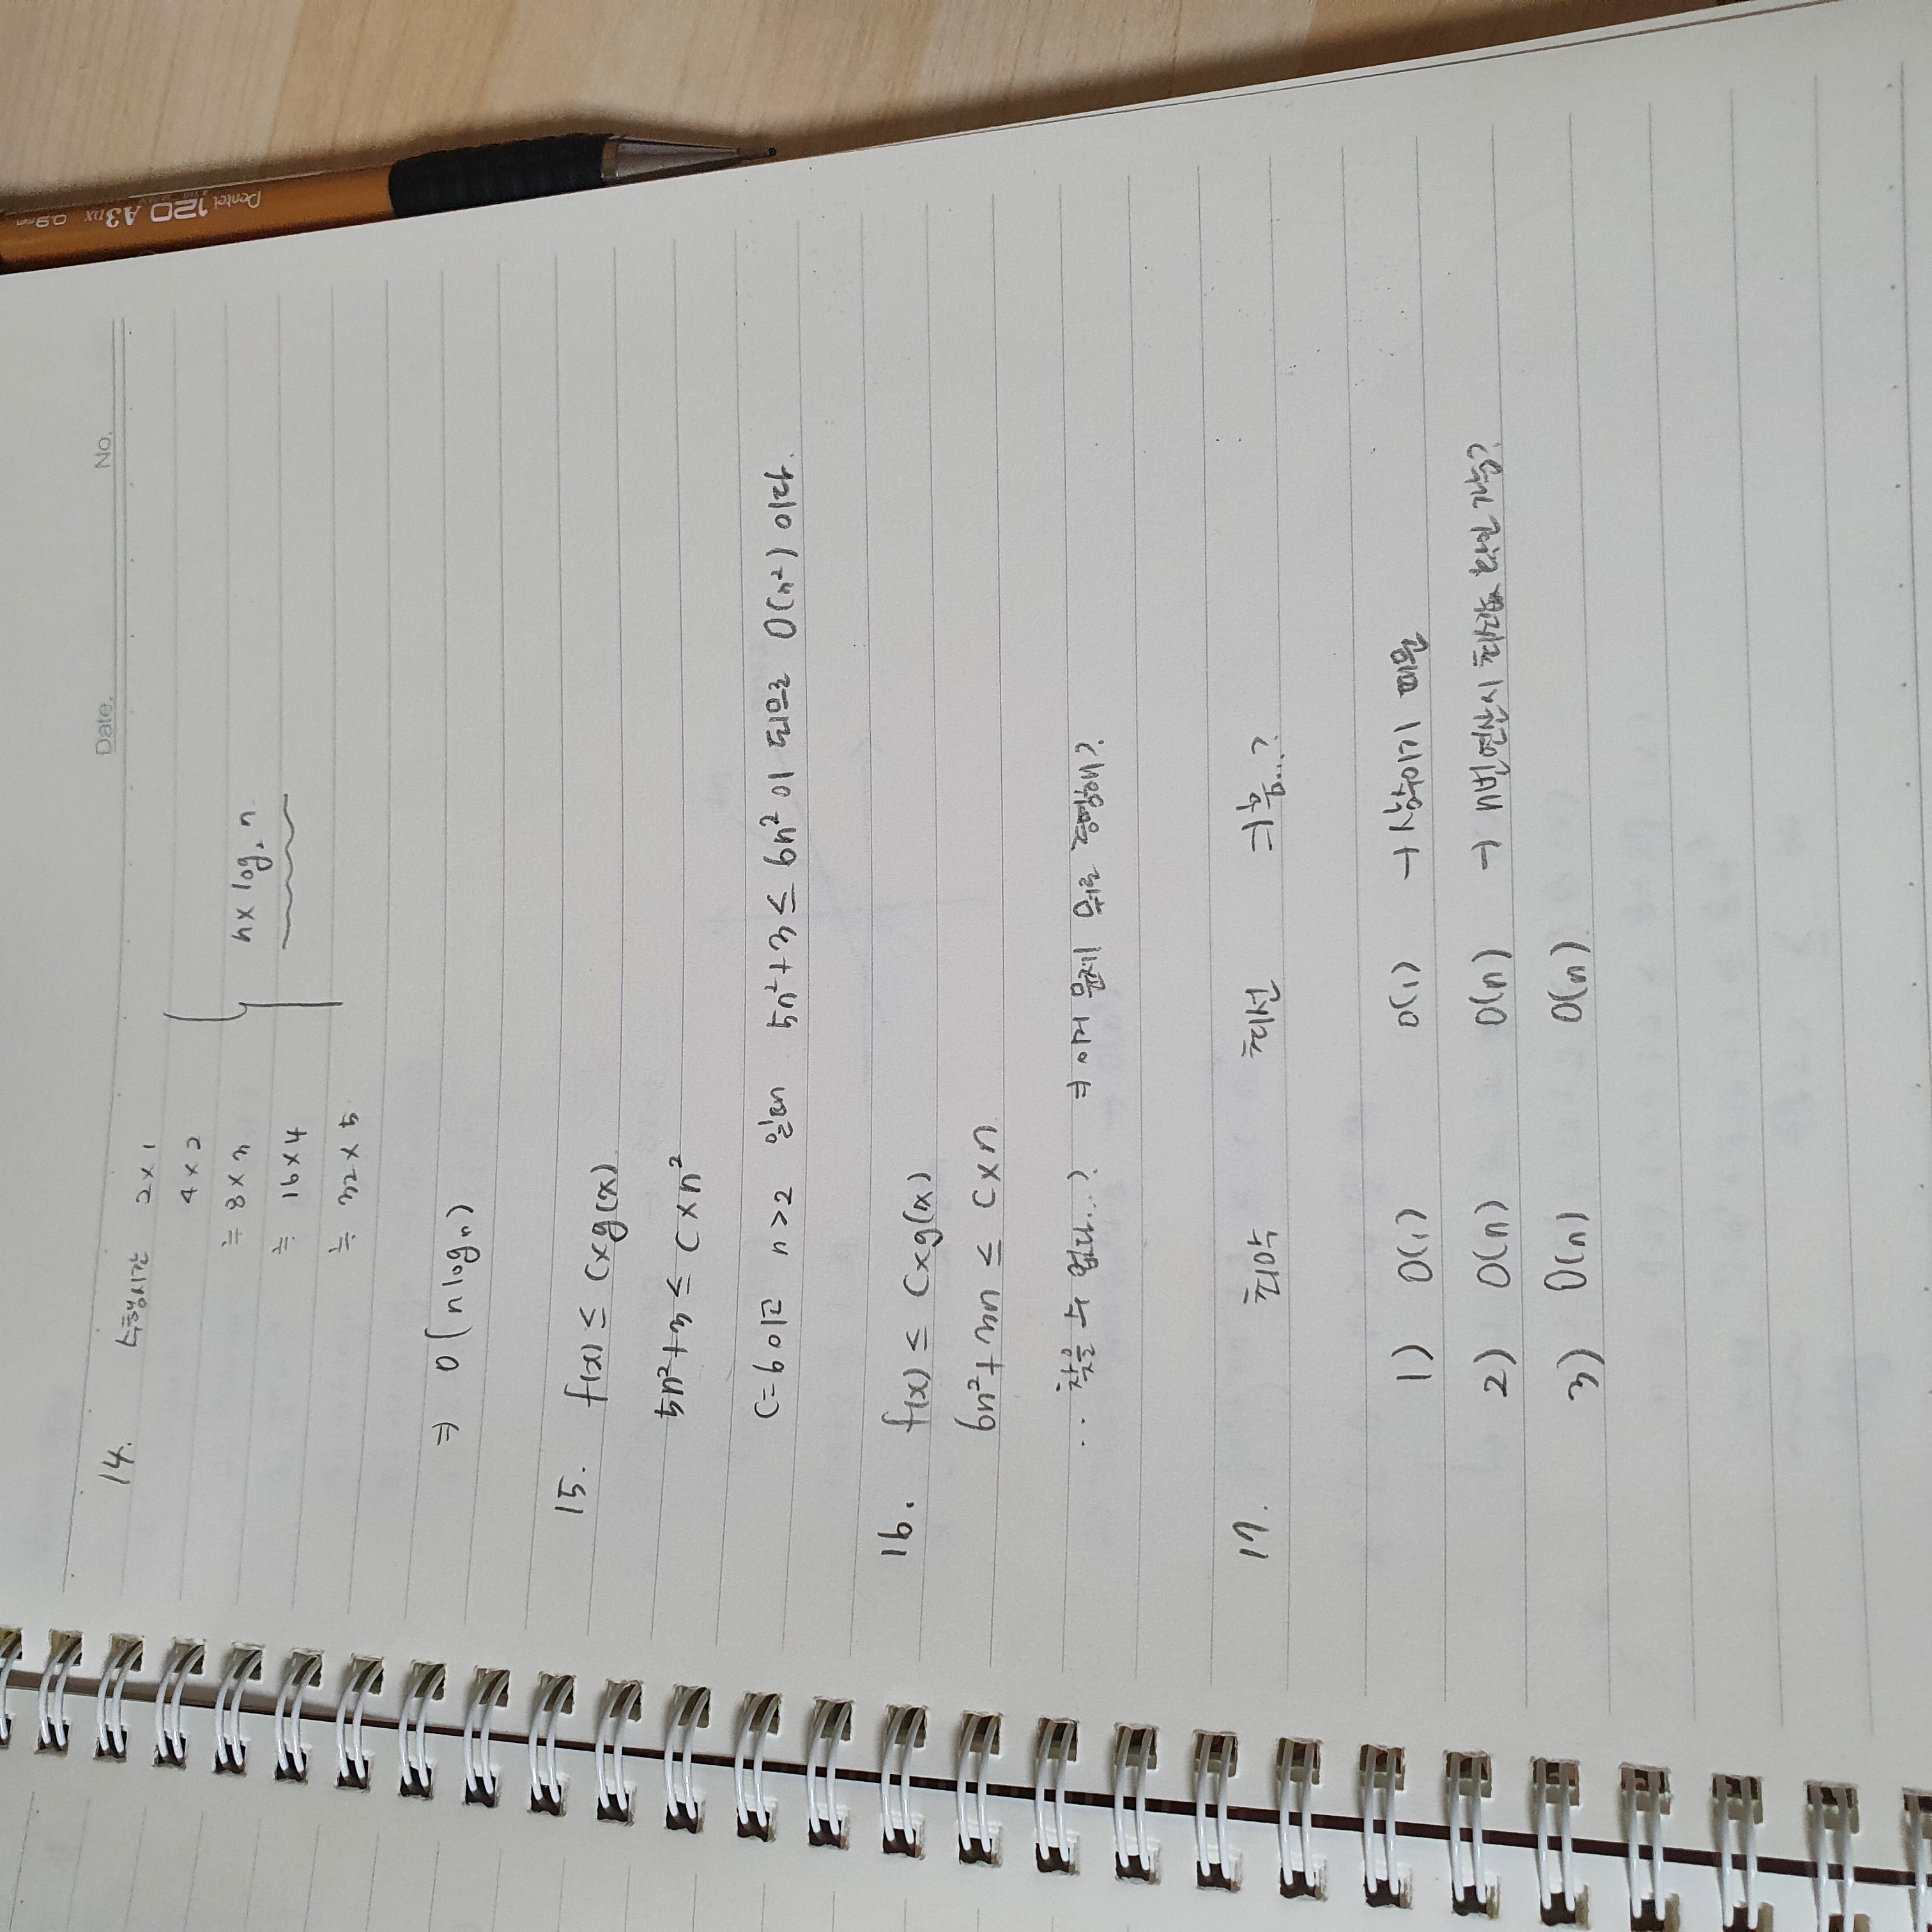 Date. No.
14. 수행시간 2×1
4×2
≒ 8×3
≒ 16×4
≒ 32×5
n× log₂ n
⇒ O(nlogn)
15. f(x) ≤ C×g(x)
5n²+3 ≤ C×n²
C=6이고 n>2 일때 5n²+3 ≤ 6n²이 되므로 O(n²)이다.
16. f(x) ≤ C×g(x)
6n²+3n ≤ C×n
.. 찾을 수 없다...? ⇒ 이거 문제 뭐로 증명해?
17. 최악 최선 ⇒ 흠...?
1) O(1) O(1) → 상수이기 때문
2) O(n) O(n) → n번 연산시 최소값 확인 가능?
3) O(n) O(n)
Pentel 120 A3DX 0.9mm